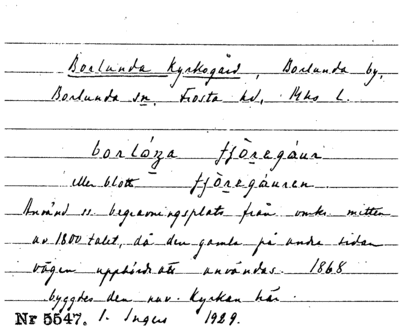 Borlunda Kyrkogård, Borlunda by,
Borlunda sn, Frosta hd, Mhs l.
borlóza fjöregáur
eller blott fjöregáuren
Använd ss. begravningsplats från omkr. mitten
av 1800 talet, då den gamla på andra sidan
vägen upphörde att användas. 1868
byggdes den nuv. Kyrkan här.
Nr 5547. I. Ingers 1929.